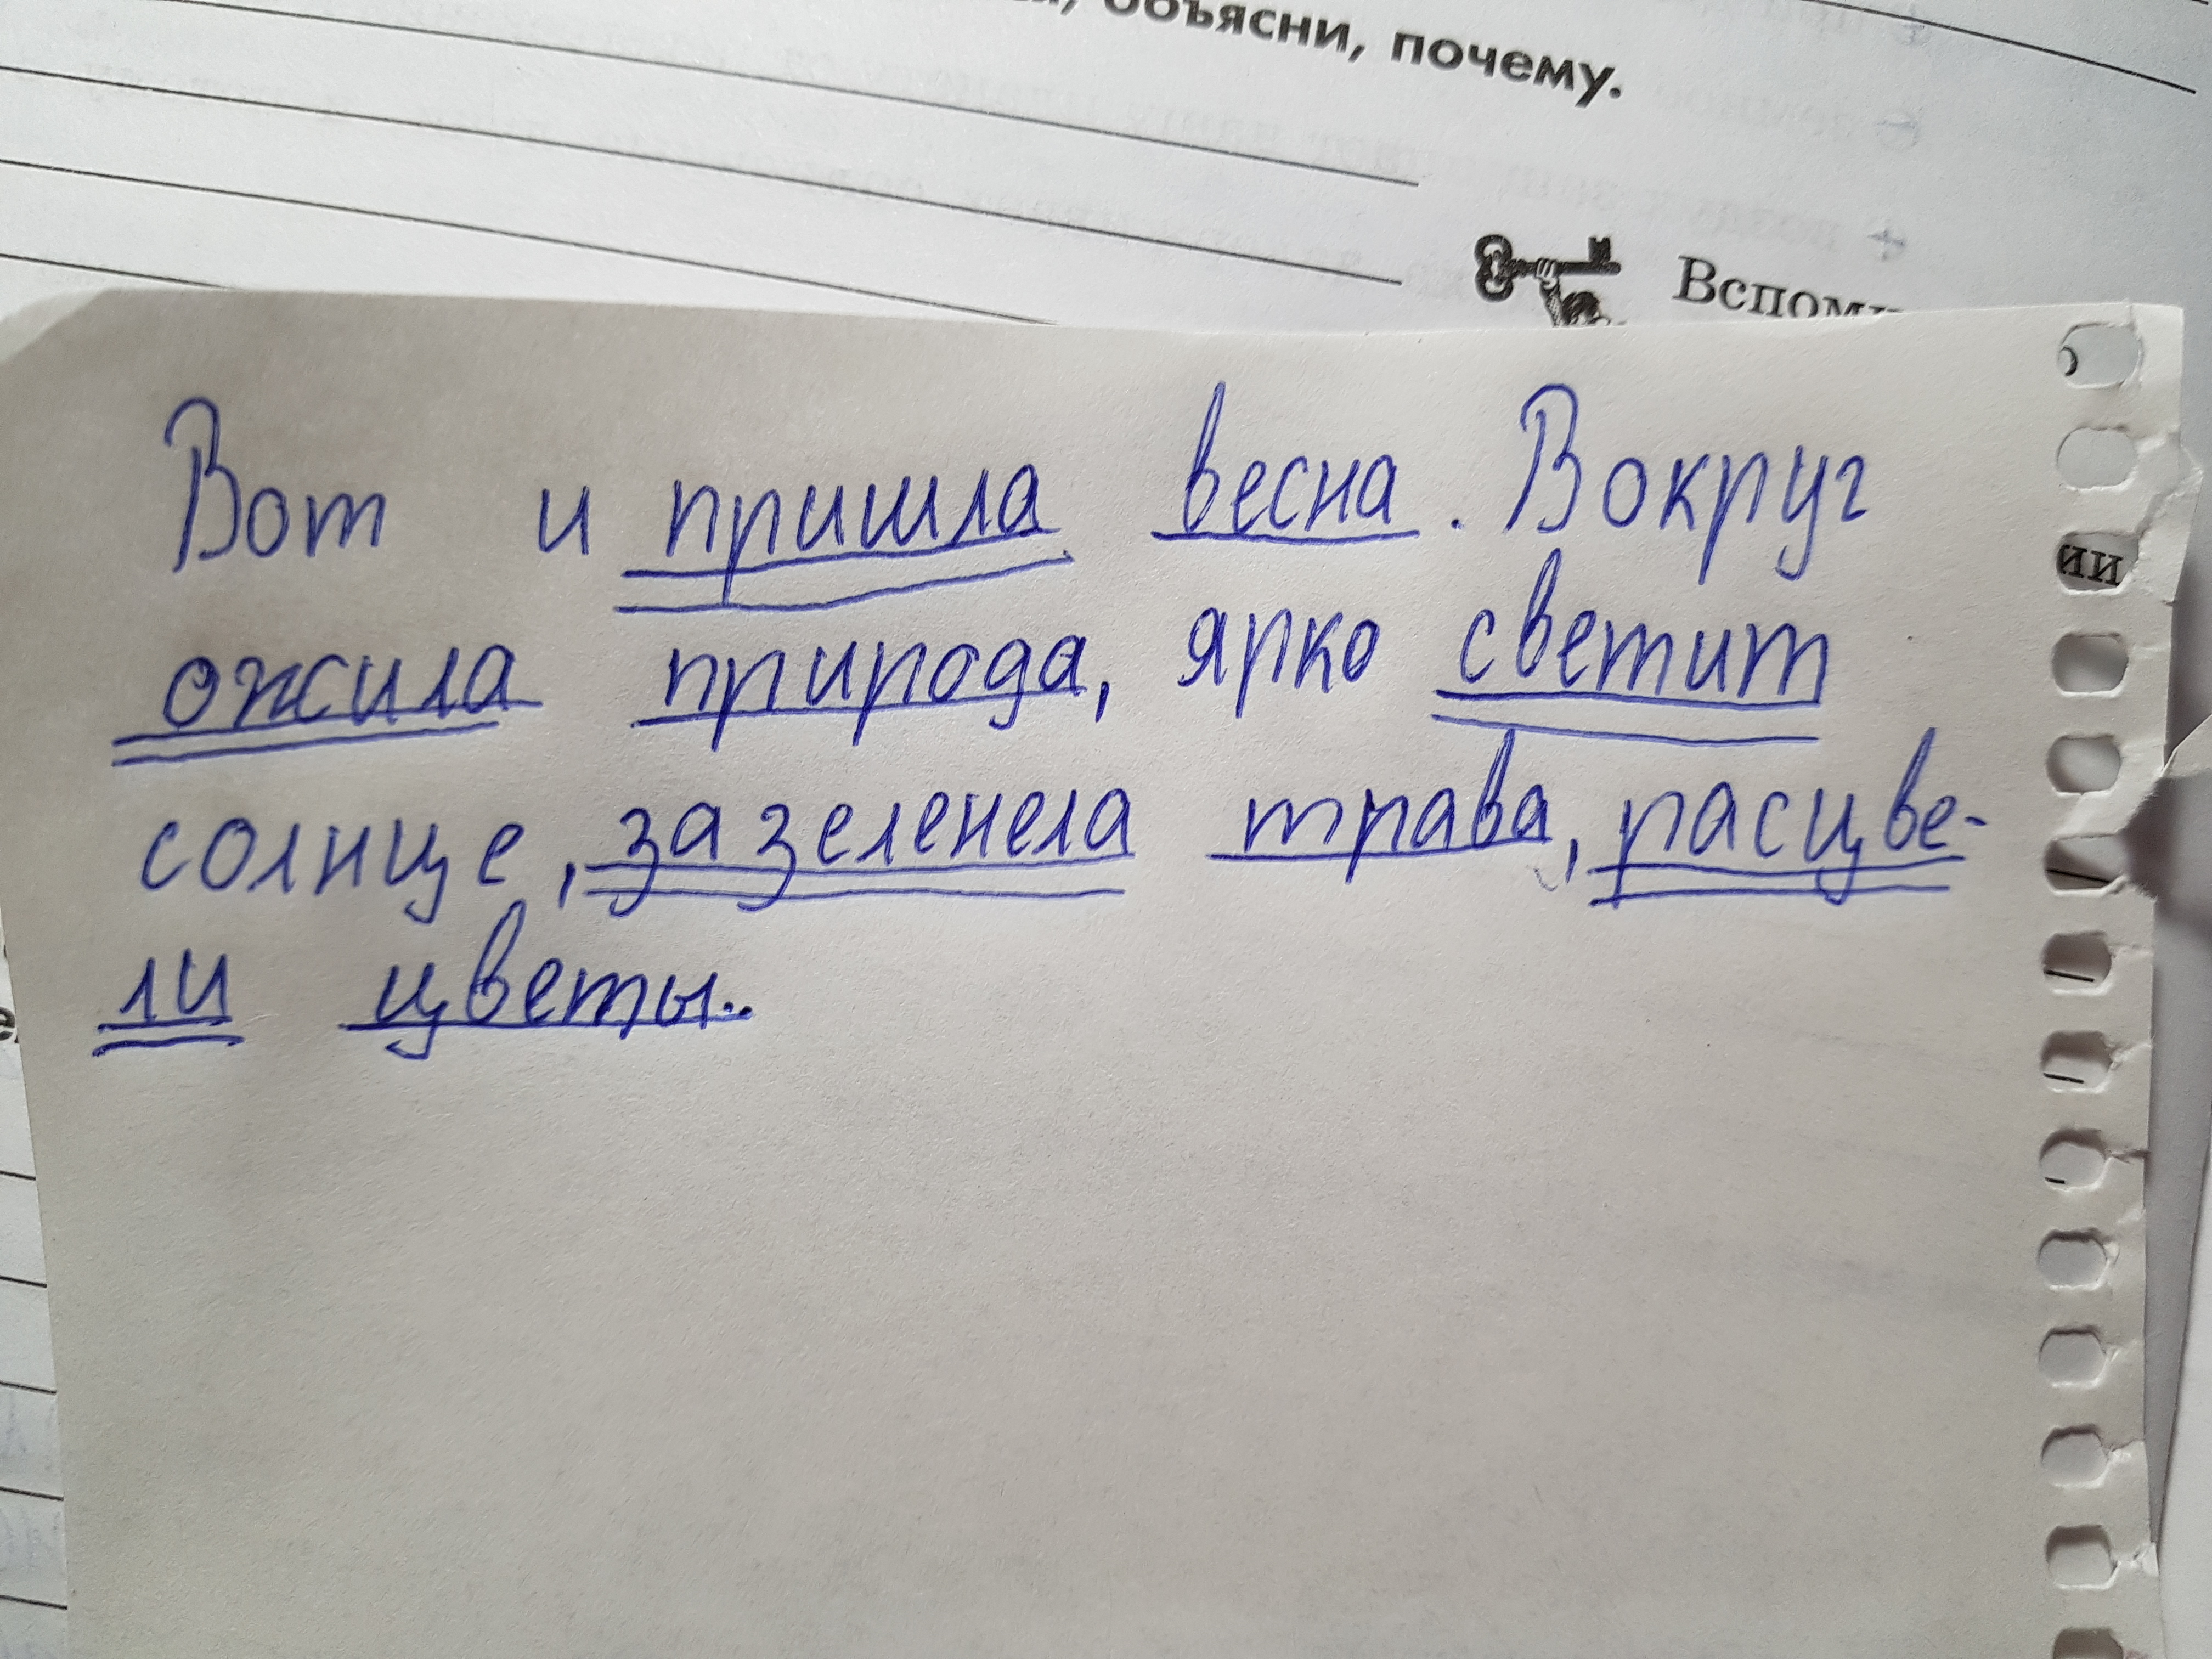 объясни, почему.
Вот и пришла весна. Вокруг
ожила природа, ярко светит
солнце, зазеленела трава, расцве-
ли цветы..